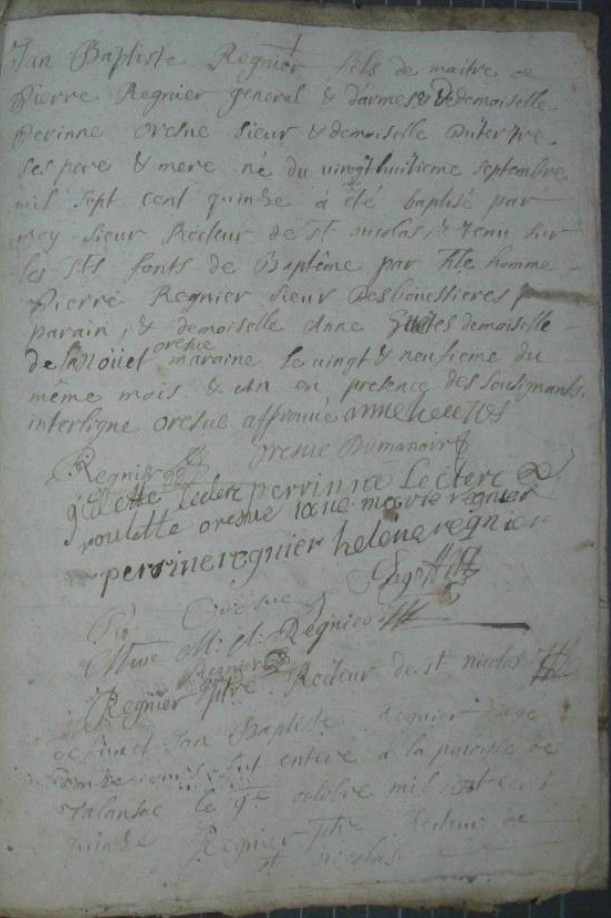 Jan Baptiste Regnier fils de maitre
Pierre Regnier general & d'armes & demoiselle
Perinne Oresue sieur & demoiselle Duterpre
ses pere & mere né du vingt huitieme septembre
mil sept cent quinze à été baptisé par
moy sieur Recteur de St nicolas, & tenu sur
les Sts fonts de Baptême par homme
Pierre Regnier sieur Desboüessieres
parain, & demoiselle Anne demoiselle
oresue
de la noüet maraine le vingt & neufieme du
même mois & An en presence des sousignants
interligne oresue approuvé anne
oresue Dumanoir
Regnier
gillette leclerc perrinne Leclerc
roulette oresue marie regnier
perrine regnier helene regnier
Regnier
Regnier
Regnier ptre Recteur de st nicolas
defunct Jan Baptiste Regnier age
fut enteré à la paroisse de
Malansac le 9e octobre mil sept cent
quinze Regnier ptre Recteur de
st nicolas